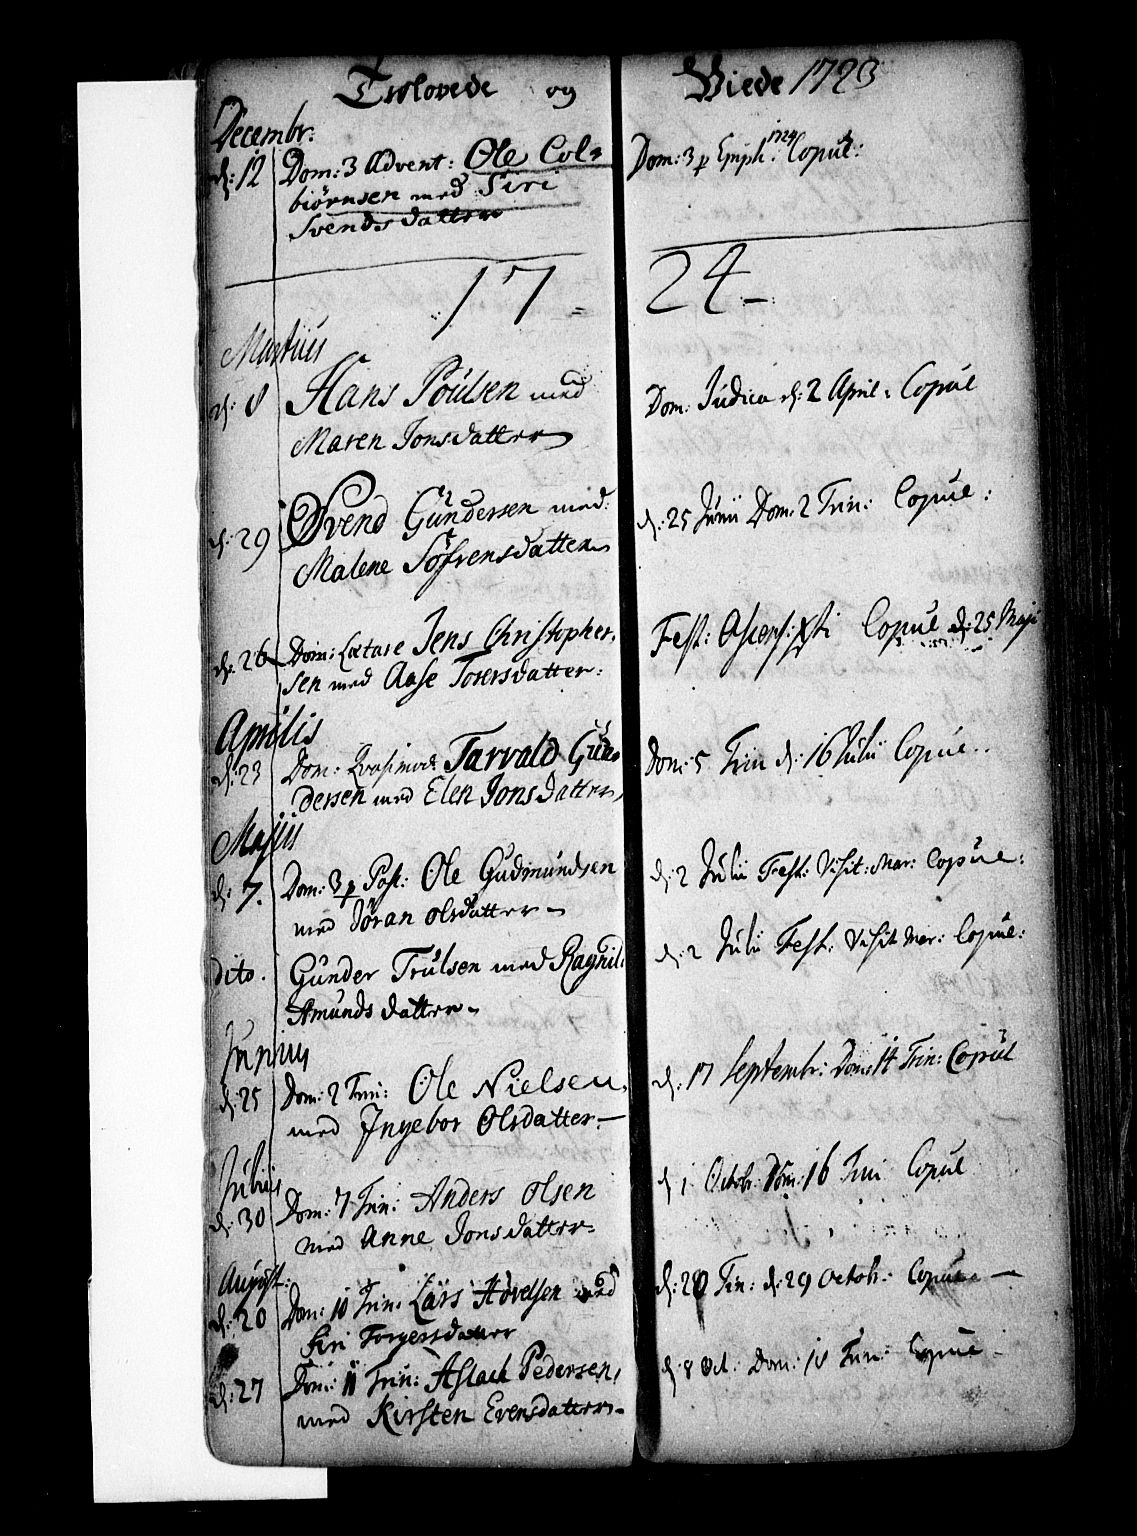 Trolovede og Viede 1723
Decembr:
d: 12 Dom: 3 Advent: Ole Col=
biörnsen med Siri
Svendsdatter
Dom: 3 p Epiph: 1724 Copul:
17 = 24 -
Martius
d: 8 Hans Poúlsen med
Maren Jonsdatter
Dom. Judica d: 2 April. Copúl
d: 29 Svend Gúndersen med
Malene Söfrensdatter
d: 25 Júnii Dom: 2 Trin: Copúl:
d: 26 Dom: Lætare Jens Christopher,
sen med Aase Torersdatter:
Fest: Ascens: Xsti Copúl d: 25 Maji
Aprilis
d: 23 Dom: Qvasimod: Tarvald Gún
dersen med Elen Jonsdatter
Dom: 5 Trin d: 16 Julii Copúl..
Majús
d: 7. Dom: 3 p Post: Ole Gúdmúndsen
med Jöran Olsdatter -
d: 2 Júlii Fest: Visit: Mar: Copúl:
dito. Gúnder Trúlsen med Ragnil
Amúndsdatter -
d: 2 Júlii Fest: Visit Mar: Copúl:
Június
d: 25 Dom: 2 Trin: Ole Nielsen,
med Ingebor Olsdatter. -
d: 17 Septembr: Dom: 14 Trin: Copúl
Július
d: 30 Dom: 7 Trin: Anders Olsen
med Anne Jonsdatter
d 1 Octobr: Dom: 16 Trin Copúl
Aúgúst:
d: 20 Dom: 10 Trin: Lars Hövelsen med
Siri Torgersdatter
d: 20 Trin: d: 29 Octobr: Copúl -
d: 27 Dom: 11 Trin: Aslach Pedersen,
med Kirsten Evensdatter -
d: 8 Oct. Dom: Trin: Copúl -